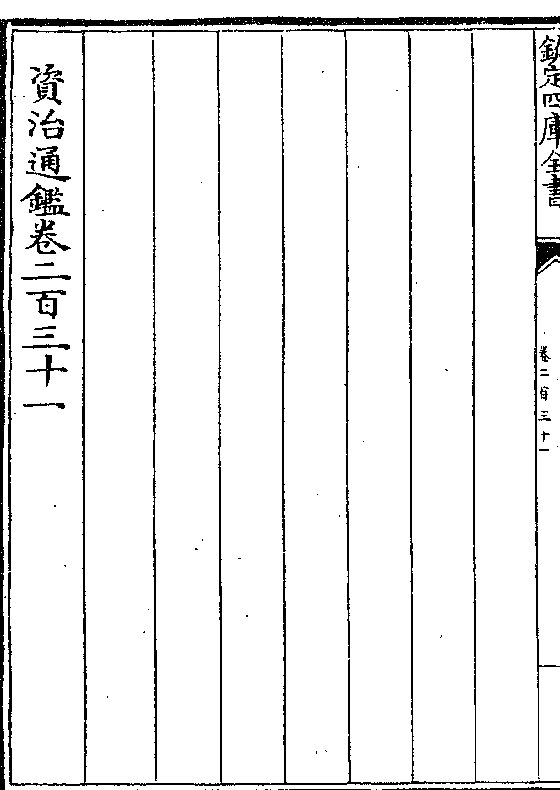 欽定四庫全書
卷二百三十一
資治通鑑卷二百三十一